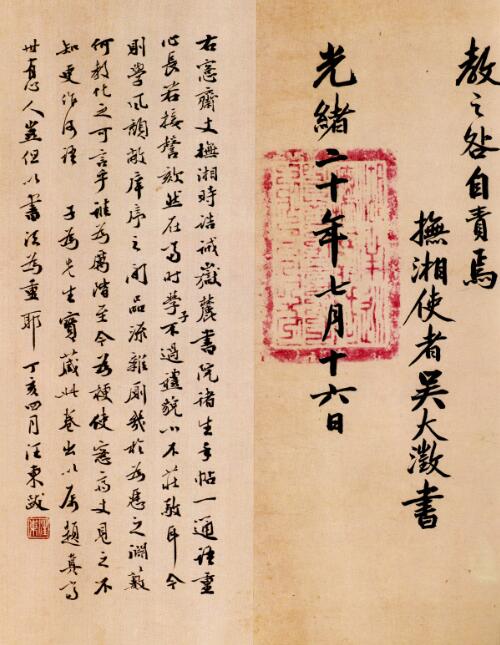 教之咎自責焉
撫湘使者吳大澂書
光緒二十年七月十六日
右愙齋丈撫湘時誥誡嶽麓書院諸生手帖一通語重
心長若接謦欬然在當時學子不過禮貌小不莊敬耳今
則學風頹敝庠序之間品流雜廁幾於為慝之淵藪
何教化之可言乎誰為厲階至今為梗使愙齋丈見之不
知更作何語 子為先生寶藏此卷出以屬題真高
世真人豈但以書法為重耶 丁亥四月汪東跋